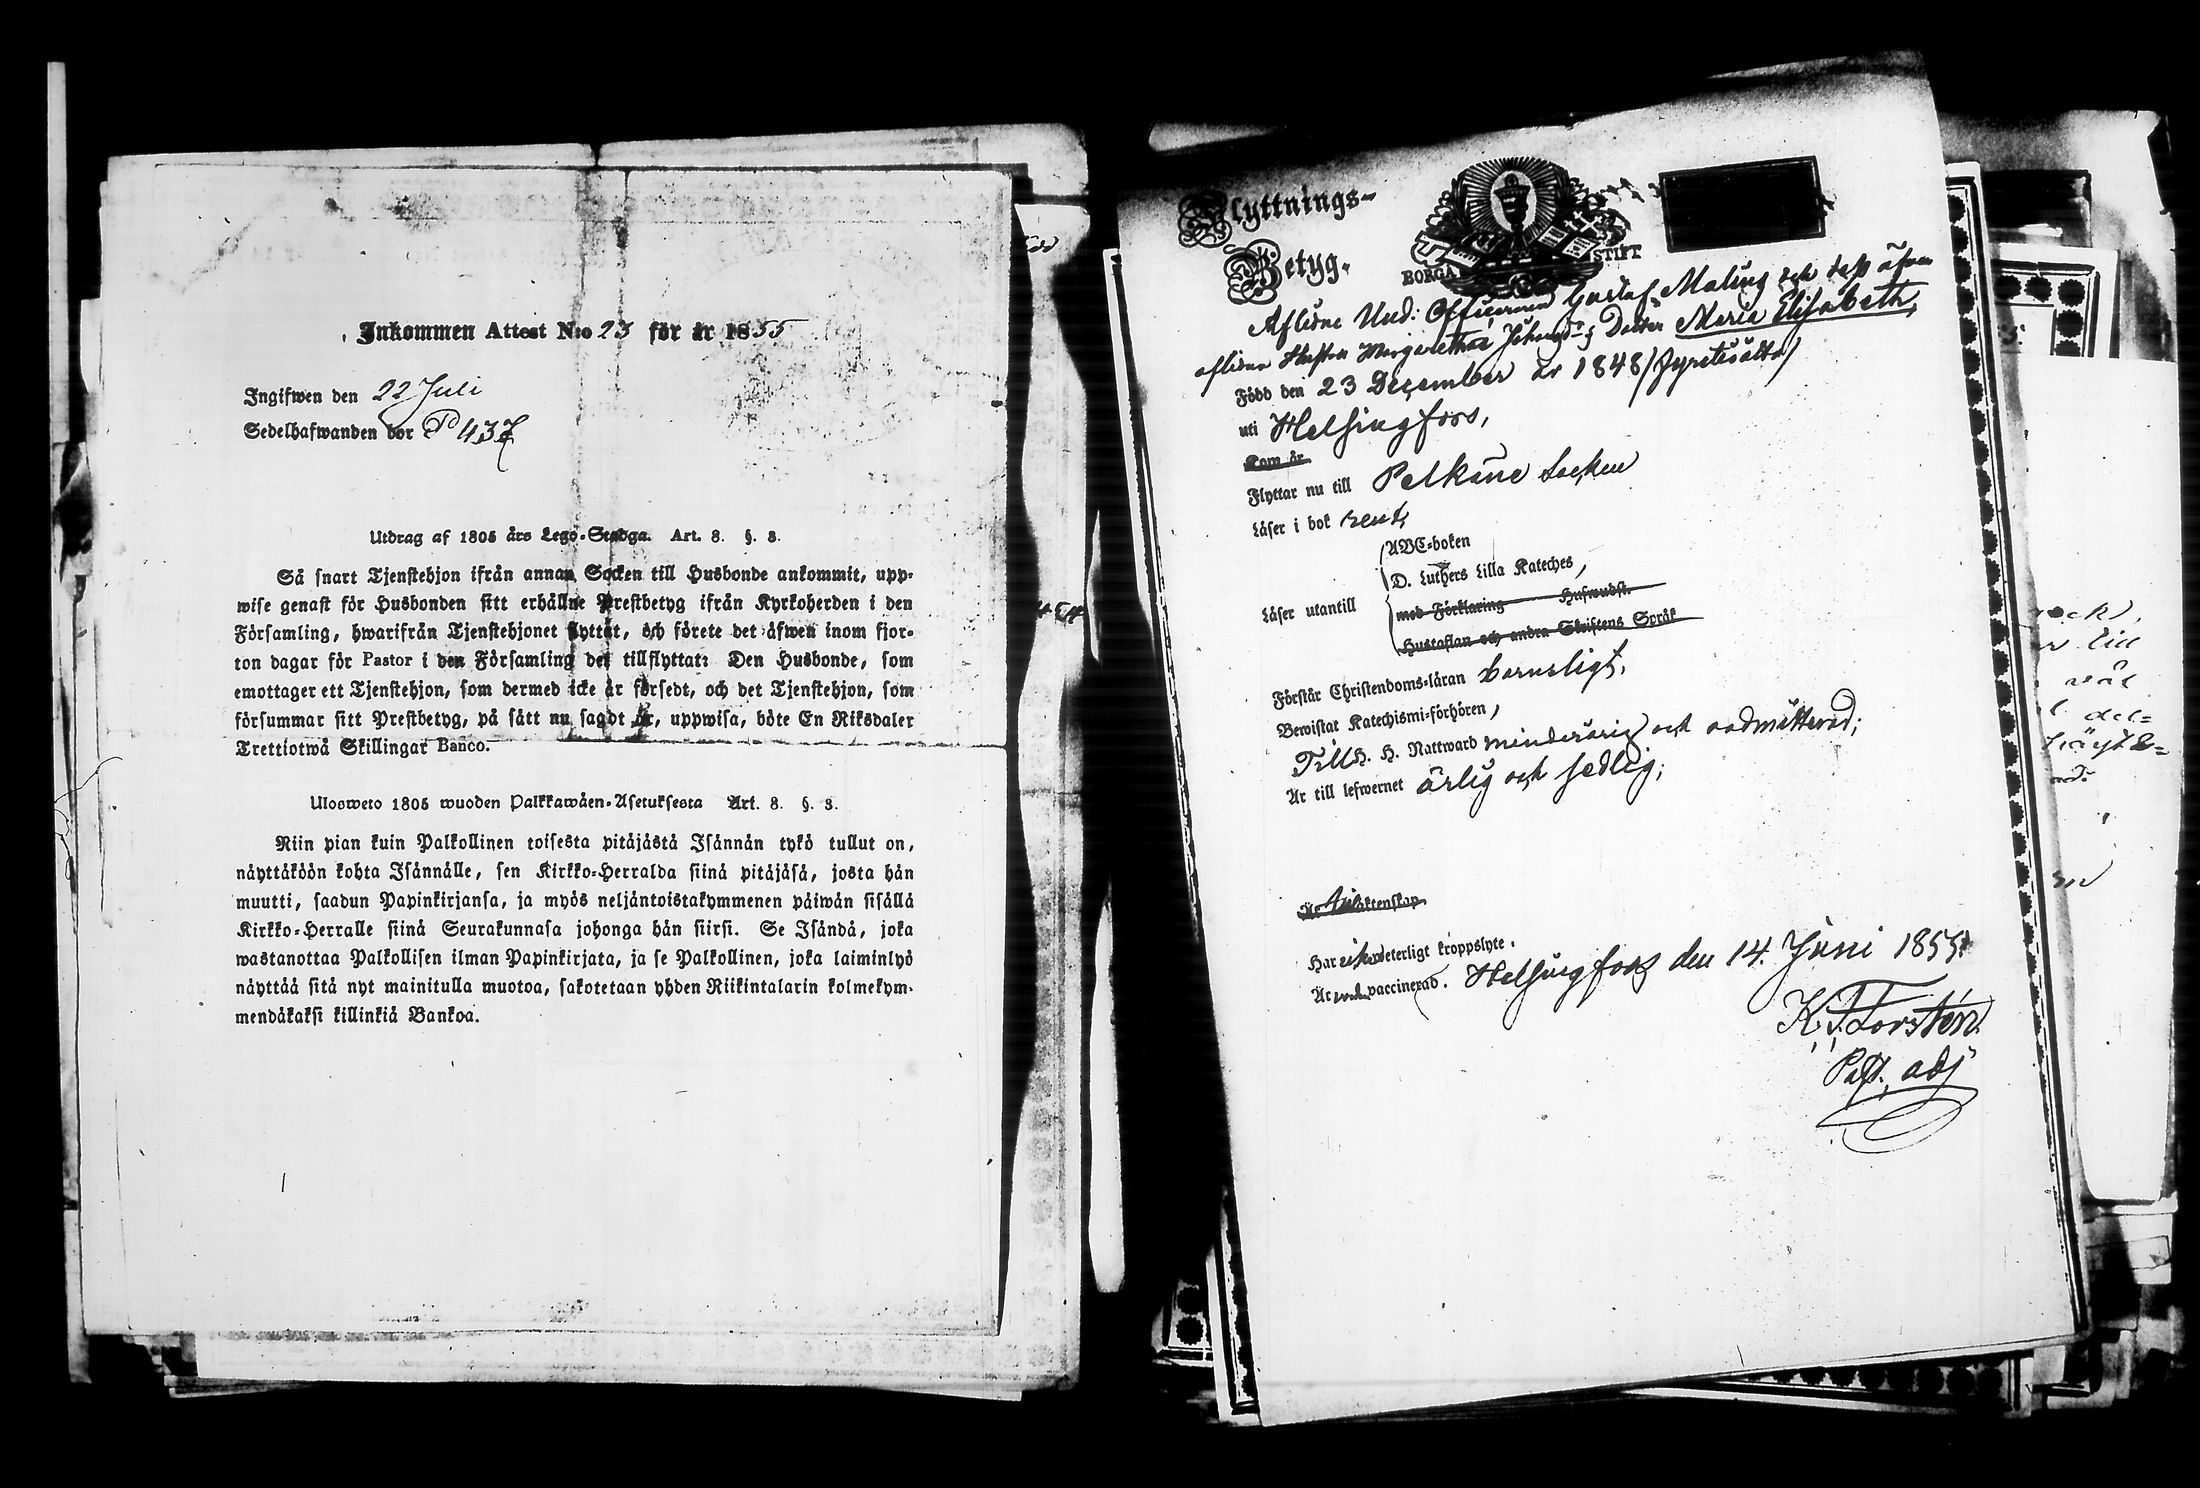 Inkommen Attest N:o 23 för år 1855
Ingifwen den 22 Juli
Sedelhafwanden bor P 437
Utdrag af 1805 års Lego-Stadga. Art. 8. §. 3.
Så snart Tjenstehjon ifrån annan Socken till Husbonde ankommit, upp-
wise genast för Husbonden sitt erhållne Prestbetyg ifrån Kyrkoherden i den
Församling, hwarifrån Tjenstehjonet flyttat, och förete det äfwen inom fjor-
ton dagar för Pastor i den Församling det tillflyttat: Den Husbonde, som
emottager ett Tjenstehjon, som dermed icke är försedt, och det Tjenstehjon, som
försummar sitt Prestbetyg, på sätt nu sagdt är, uppwisa, böte En Riksdaler
Trettiotwå Skillingar Banco.
Ulosweto 1805 wuoden Palkkawäen-Asetuksesta Art. 8. §. 3.
Niin pian kuin Palkollinen toisesta pitäjästä Isännän tykö tullut on,
näyttäköön kohta Isännälle, sen Kirkko-Herralda siinä pitäjäsä, josta hän
muutti, saadun Papinkirjansa, ja myös neljäntoistakymmenen päiwän sisällä
Kirkko-Herralle siinä Seurakunnasa johonga hän siirsi. Se Isändä, joka
wastanottaa Palkollisen ilman Papinkirjata, ja se Palkollinen, joka laiminlyö
näyttää sitä nyt mainitulla muotoa, sakotetaan yhden Riikintalarin kolmekym-
mendäkaksi killinkiä Bankoa.
Flyttnings-
Betyg.
BORGÅ STIFT
Aflidne Und: Officeraren Gustaf Maling och dess äfven
aflidna Hustru Margaretha Johansd:rs Dotter Maria Elisabeth,
Född den 23 December år 1848
uti Helsingfors,
Kom år
Flyttar nu till Pelkäne Socken
Läser i bok rent,
ABC-boken
D. Luthers Lilla Kateches,
Läser utantill
med Förklaring Hufwudst.
Hustaflan och andra Skriftens Språk
Förstår Christendoms-läran barnsligt.
Bewistat Katechismi-förhören,
Till H. H. Nattward minderårig och oadmitterad;
Är till lefwernet ärlig och sedlig;
Är äktenskap
Har icke weterligt kroppslyte.
Är vaccinerad. Helsingfors den 14 Juni 1855.
K. J. Forstén
Past. adj